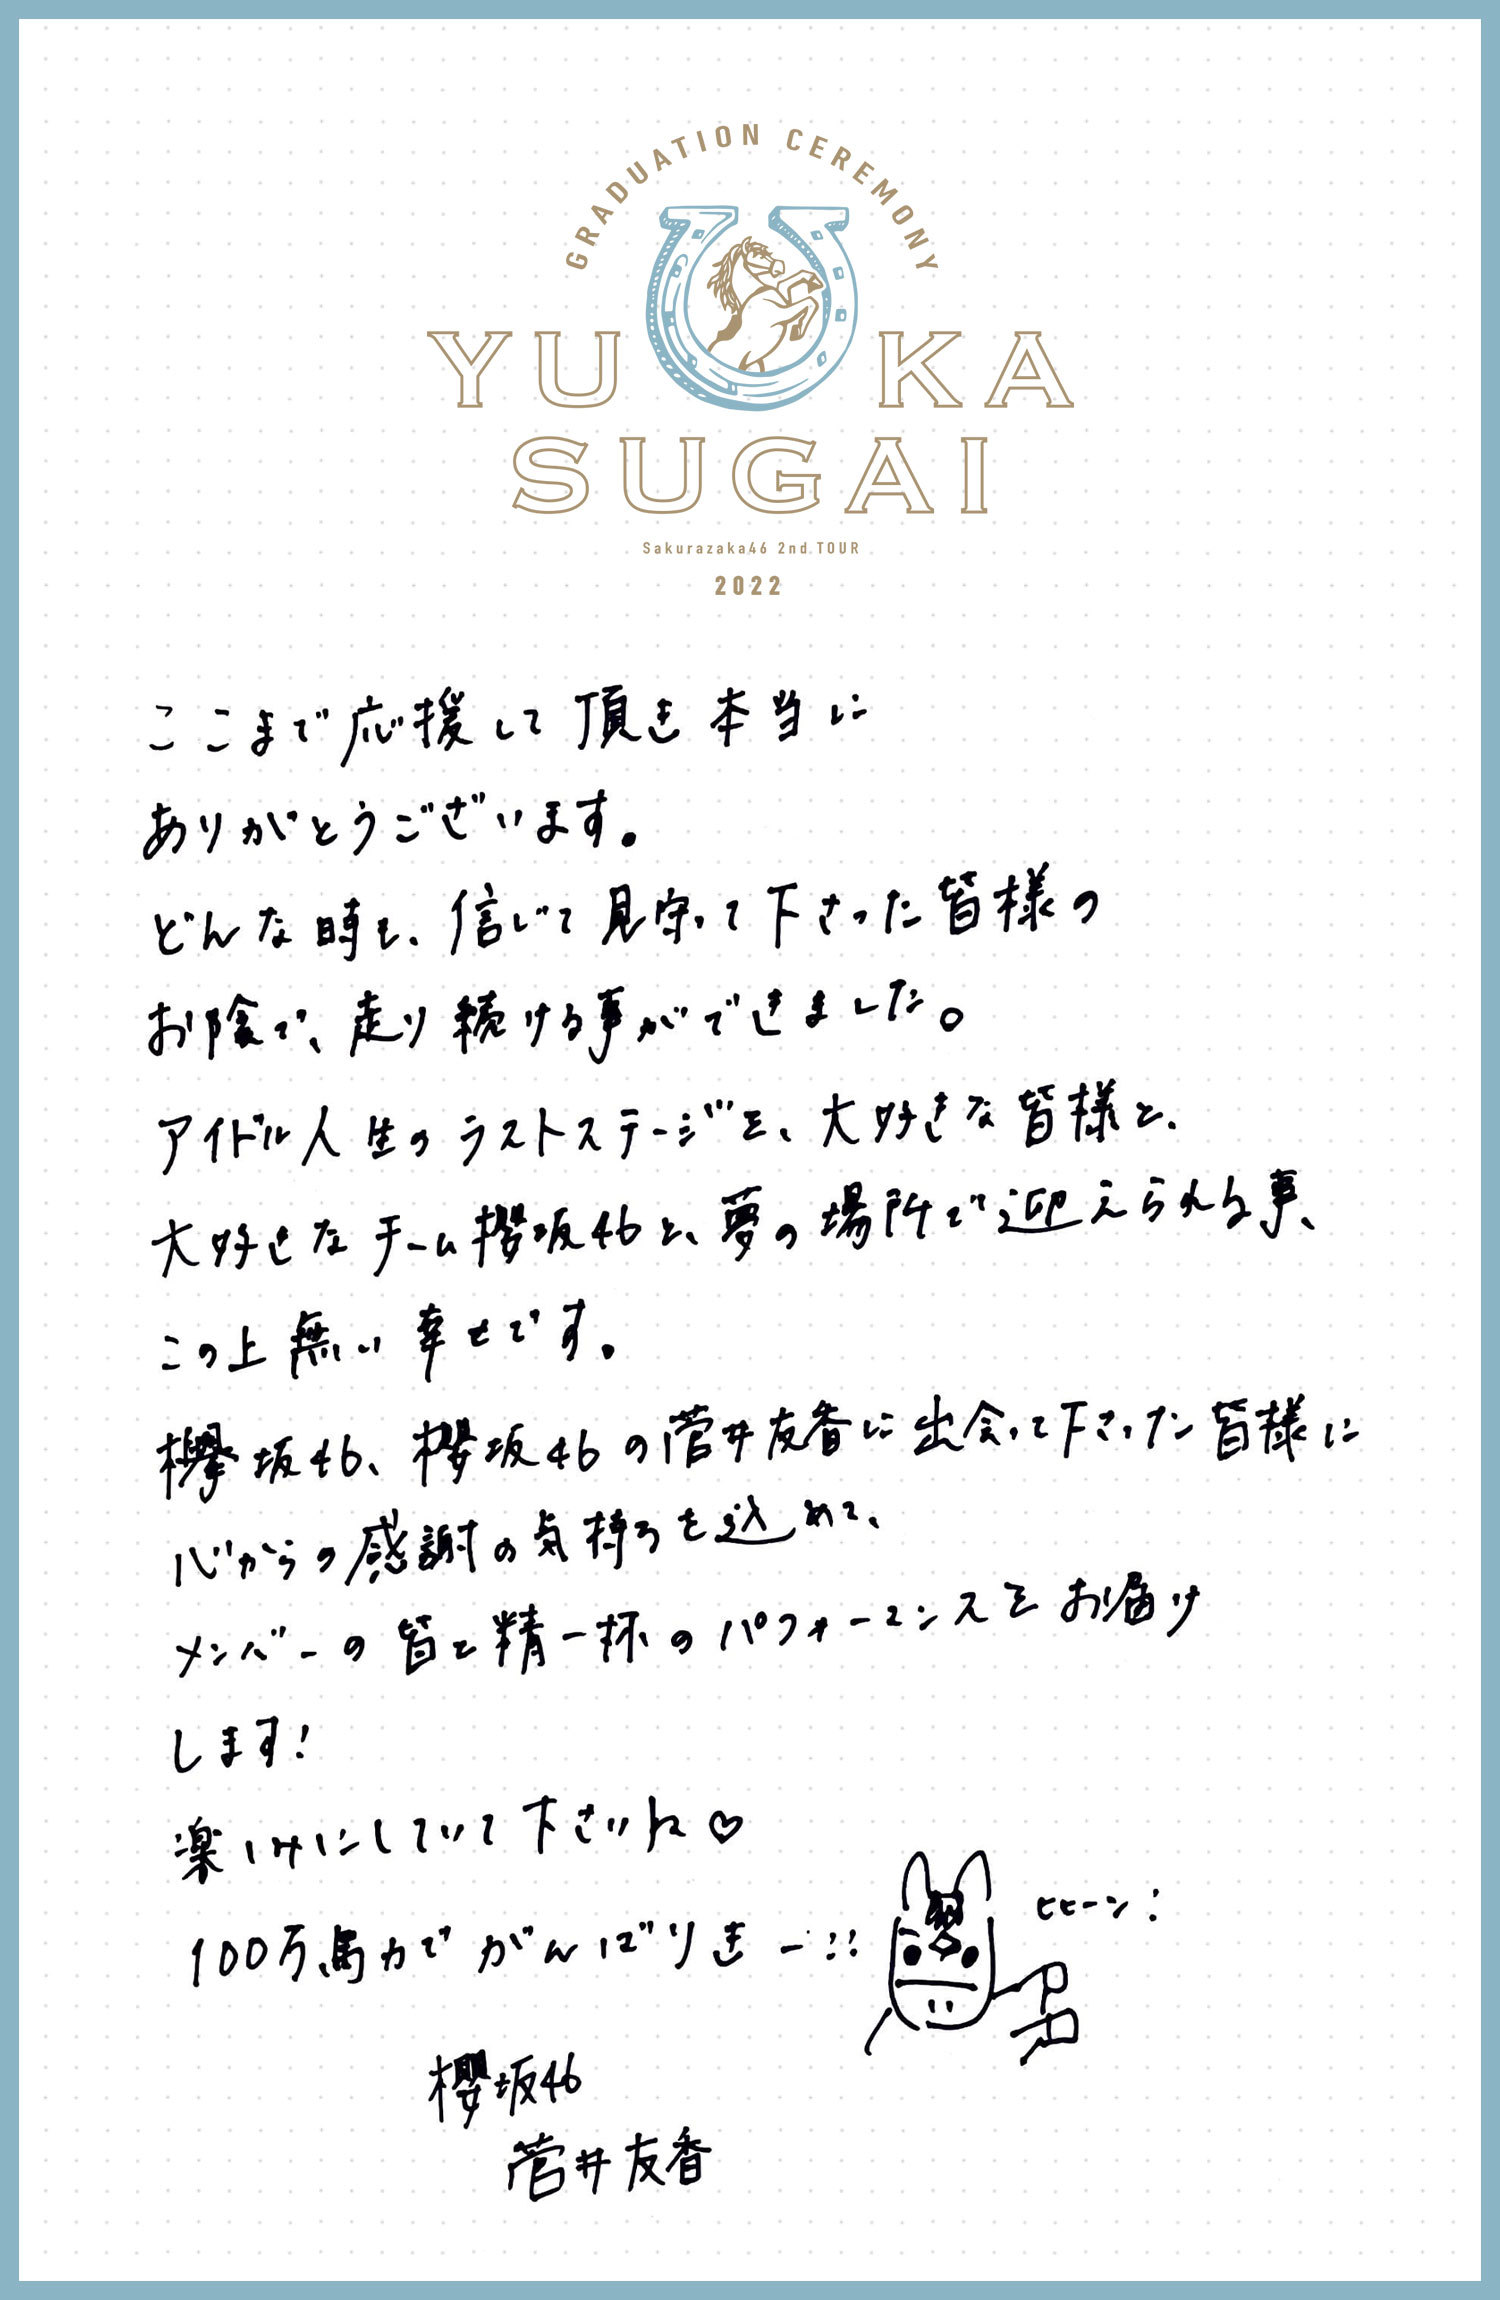 GRADUATION CEREMONY
YUUKA
SUGAI
Sakurazaka46 2nd TOUR
2022
ここまで応援して頂き本当に
ありがとうございます。
どんな時も、信じて見守って下さった皆様の
お陰で、走り続ける事ができました。
アイドル人生のラストステージを、大好きな皆様と、
大好きなチーム櫻坂46と、夢の場所で迎えられる事、
この上無い幸せです。
欅坂46、櫻坂46の菅井友香に出会って下さった皆様に
心からの感謝の気持ちを込めて、
メンバーの皆と精一杯のパフォーマンスをお届け
します!
楽しみにしていて下さいね♡
100万馬力でがんばりきー!!
ヒヒーン!
櫻坂46
菅井友香